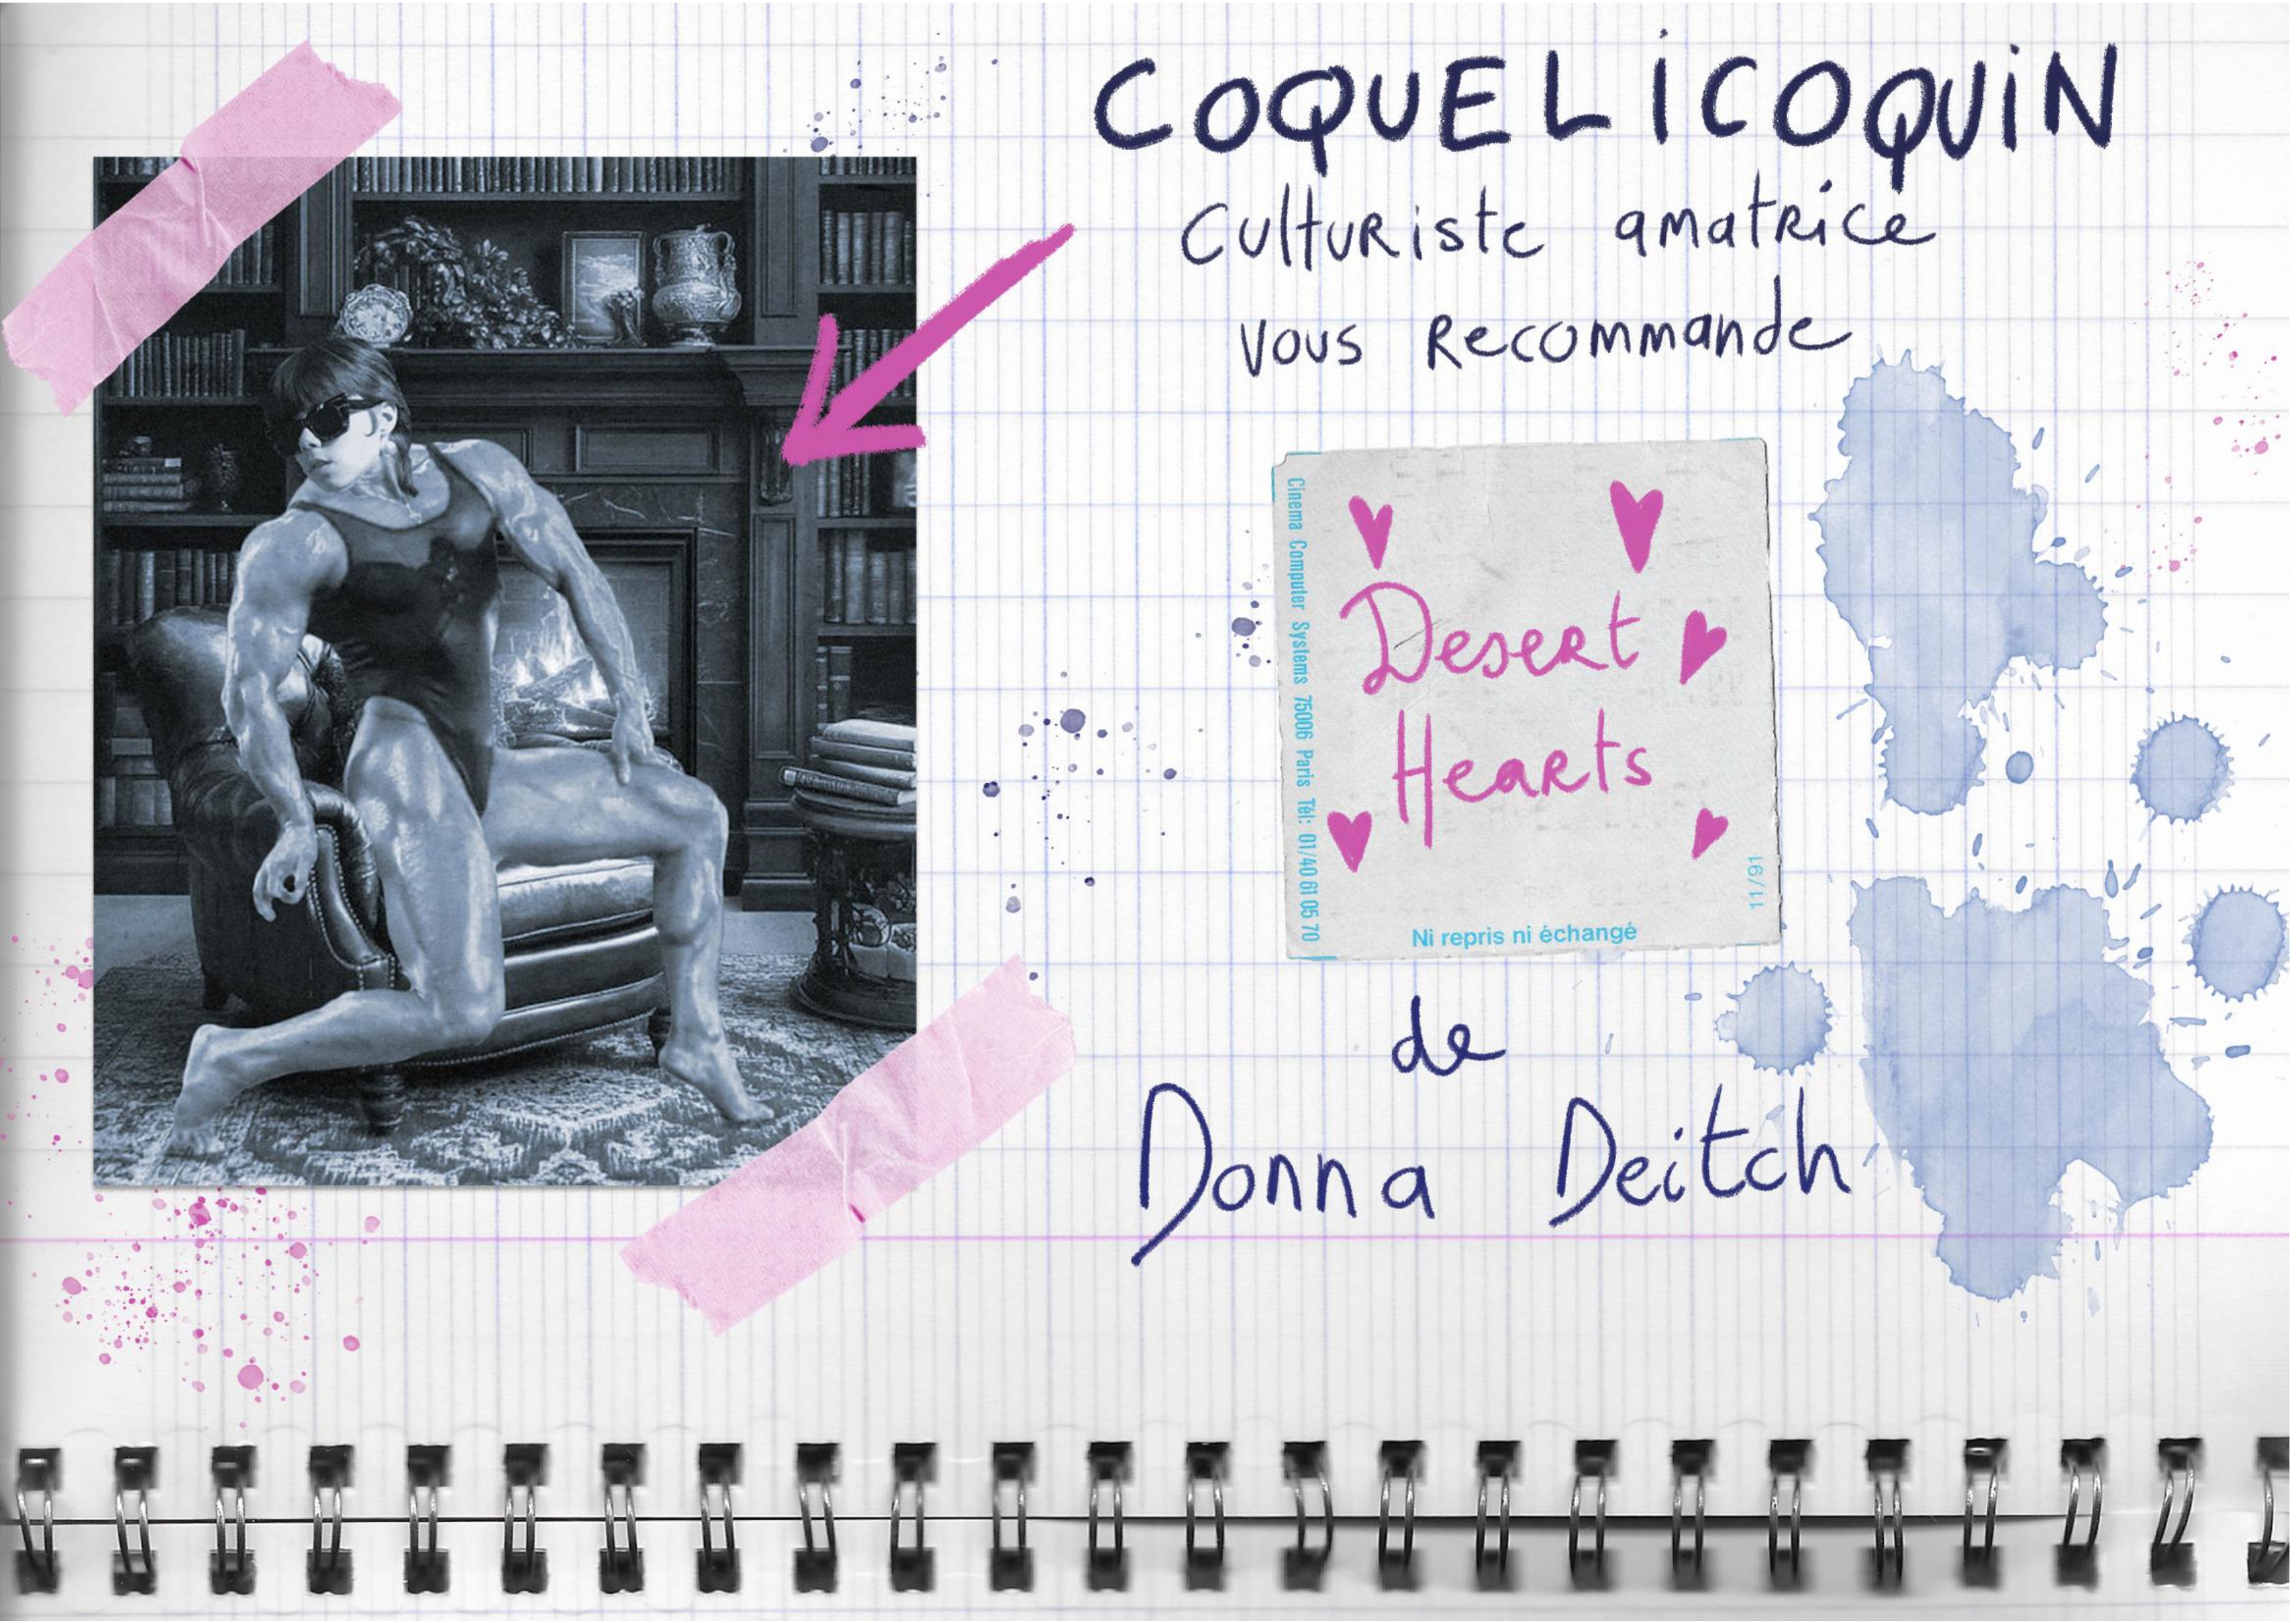 COQUELiCOQUiN
culturiste amatrice
vous recommande
Cinema Computer Systems 75006 Paris Tél: 01/40 61 05 70
Desert
Hearts
11/91
Ni repris ni échangé
de
Donna Deitch